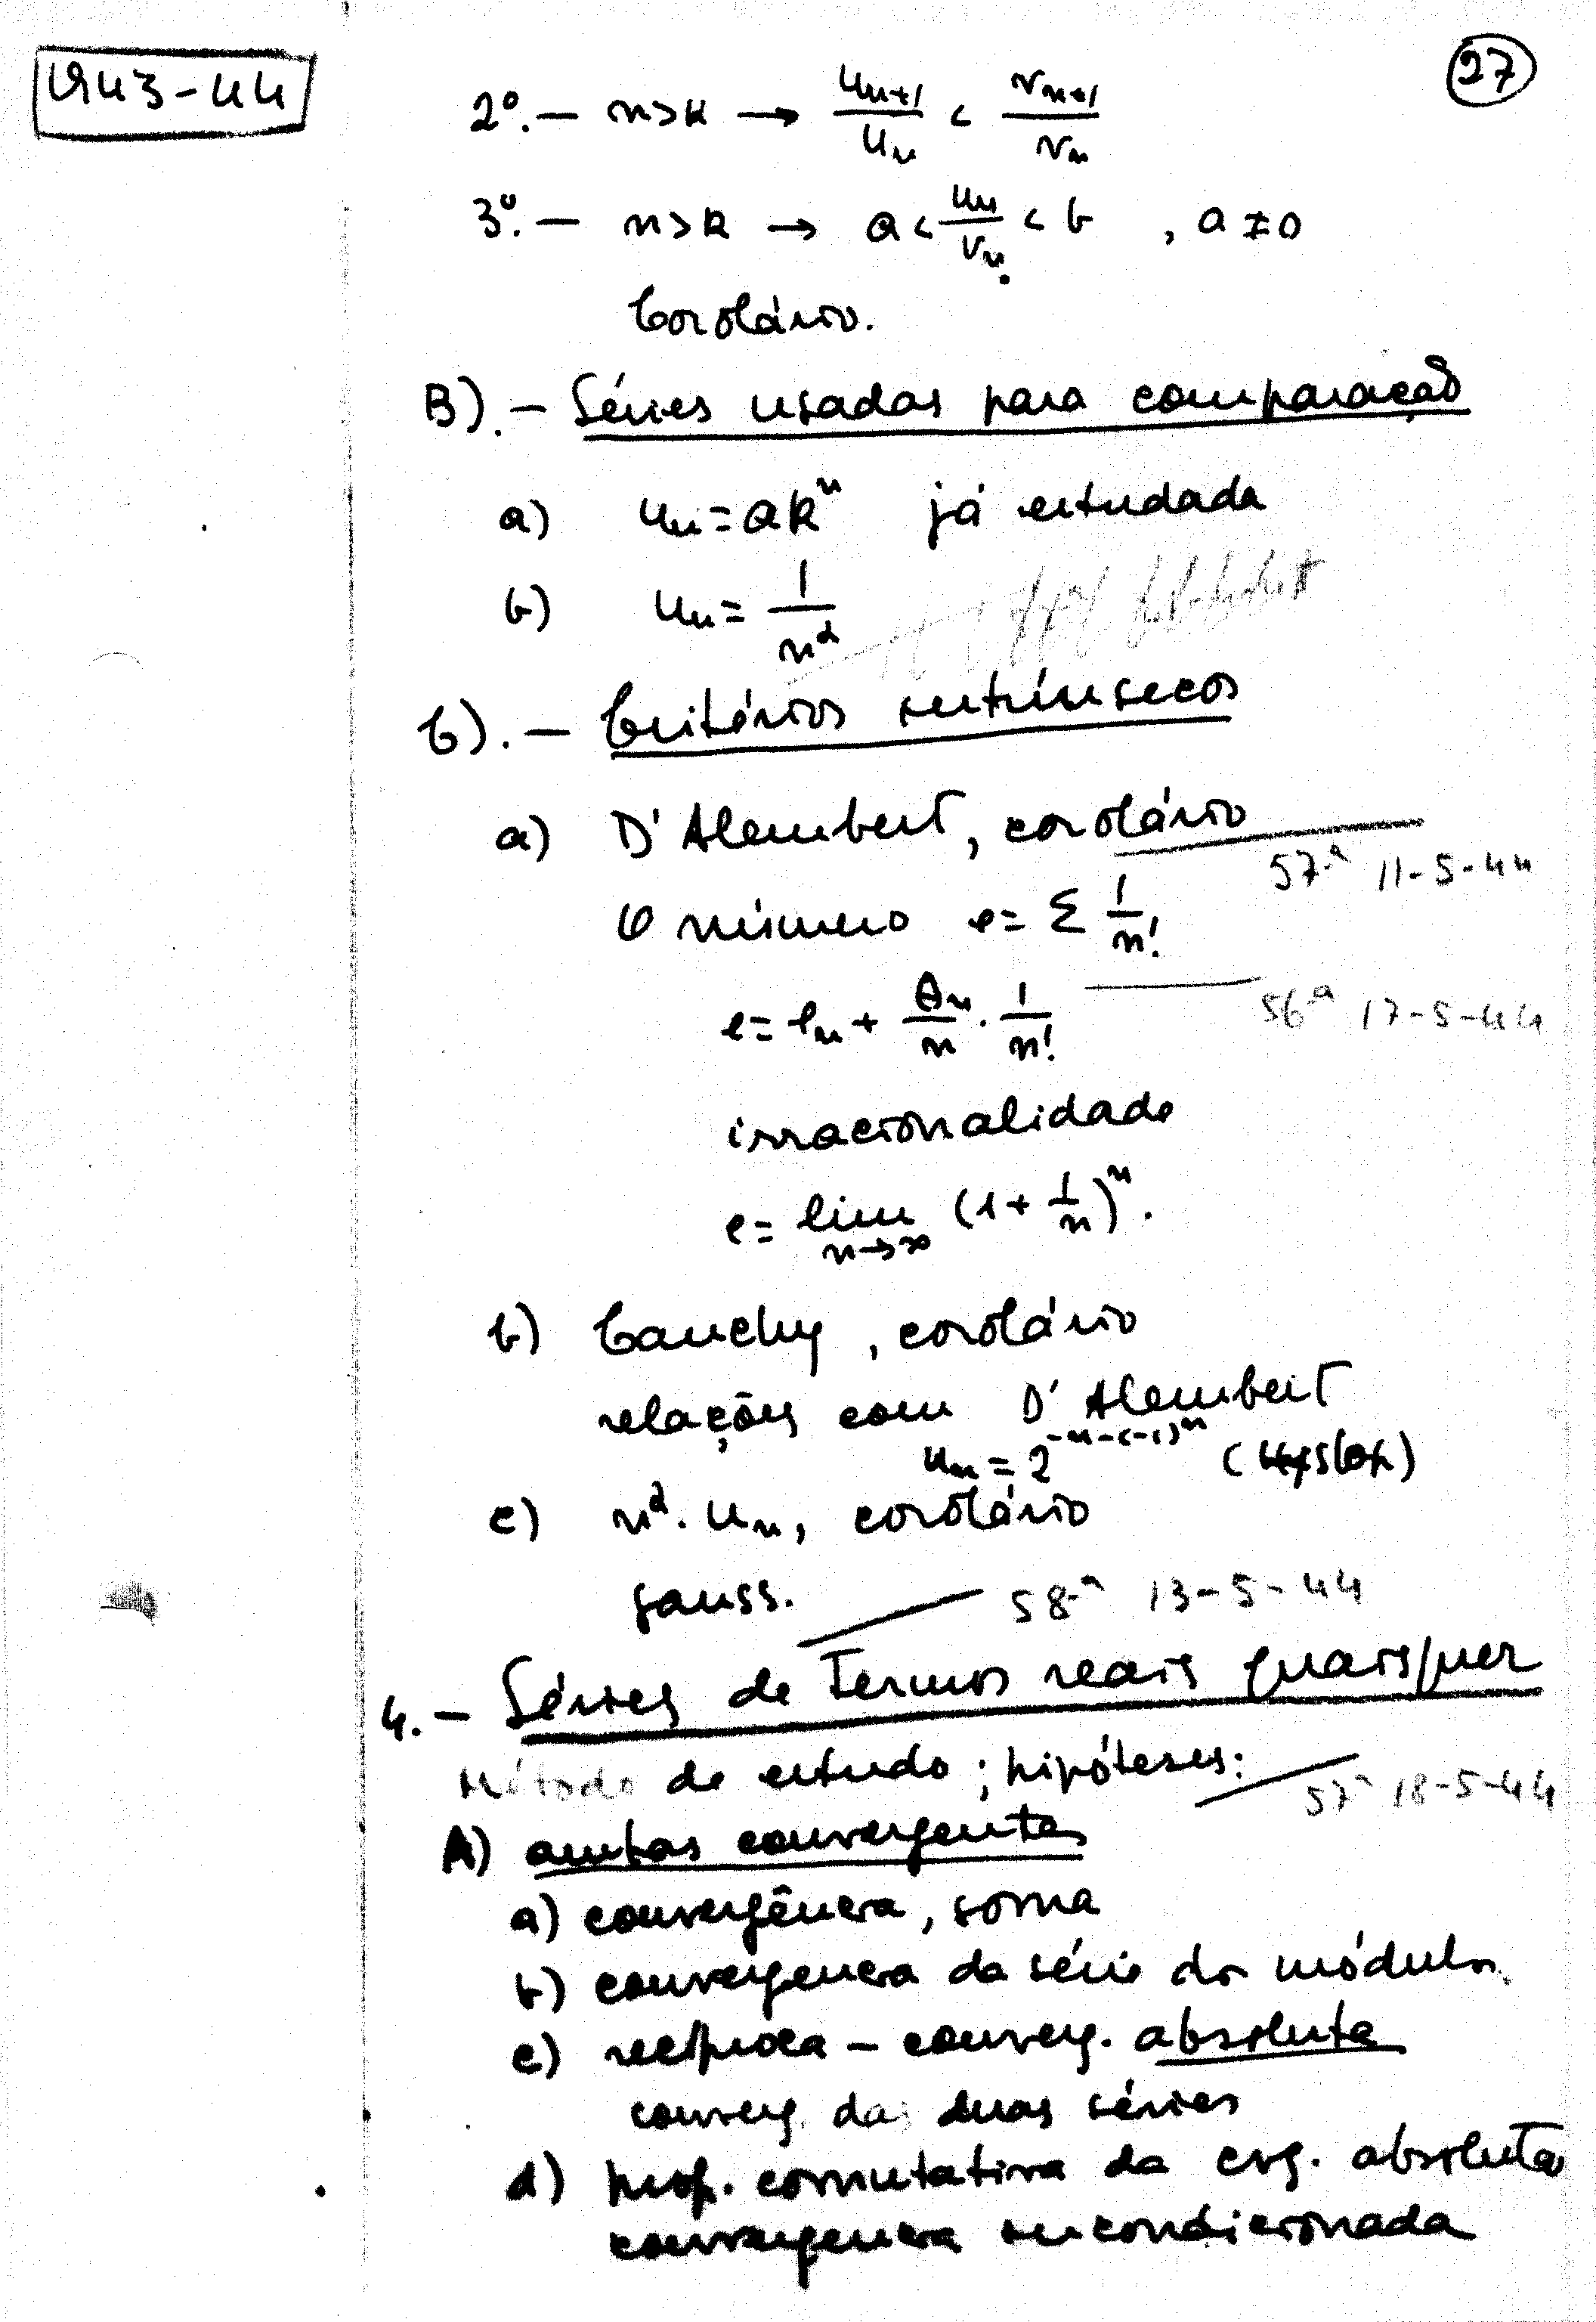 1943-44
27
2º. — n>k → u_{n+1}/u_n < v_{n+1}/v_n
3º. — n>k → a < u_n/v_n < b , a ≠ 0
Corolário.
B). — Séries usadas para comparação
a) u_n = ak^n já estudada
b) u_n = 1/n^α
C). — Critérios intrínsecos
a) D'Alembert, corolário
57ª 11-5-44
O número e = Σ 1/n!
e = e_n + θ_n/n · 1/n!
56ª 17-5-44
irracionalidade
e = lim_{n→∞} (1 + 1/n)^n.
b) Cauchy, corolário
relações com D'Alembert
u_n = 2^{-n-(-1)^n} (Hyslop)
c) n^α. u_n, corolário
Gauss.
58ª 13-5-44
4. — Séries de termos reais quaisquer
Método de estudo ; hipóteses:
57ª 18-5-44
A) ambas convergentes
a) convergência, soma
b) convergencia da série dos módulos.
c) recíproca — converg. absoluta
converg. das duas séries
d) prop. comutativa da cvg. absoluta
convergencia incondicionada